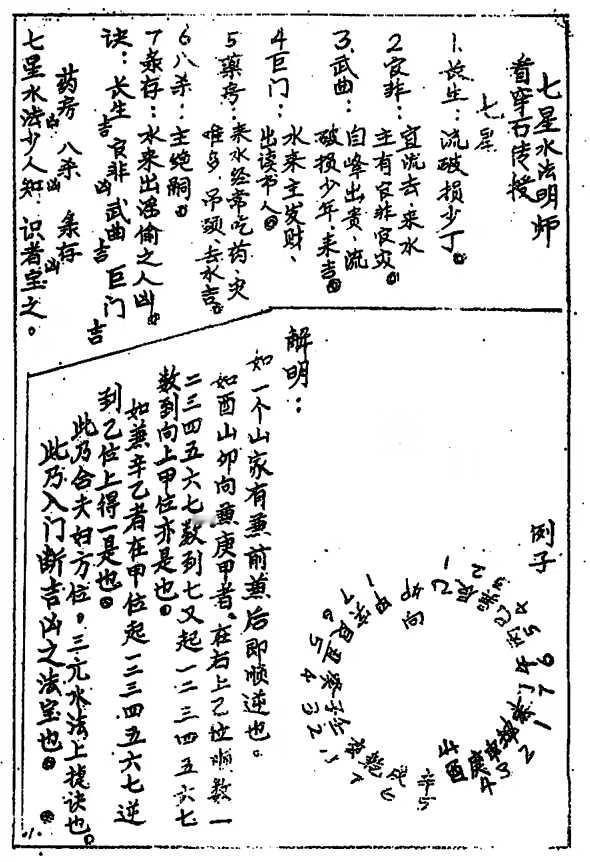 七星水法明师
看穿石传授
七星
1、长生：流破损少丁。
2官非：宜流去、来水
主有官非官灾
3、武曲：自峰出贵、流
破损少年、来吉
4巨门：水来主发财、
出读书人。
5藥房：来水经常吃药、灾
难多、吊颈、去水吉。
6八杀：主绝嗣
7条存：水来出淫偷之人凶
诀：长生 官非 武曲 巨门
吉 凶 吉 吉
药房 八杀 条存
凶 凶 凶
七星水法少人知、识者宝之。
例子
卯向
乙 辰 巽 巳 丙
1 2 3 4 5
6 7 1 2 3 4
庚
酉山
辛 戌 乾
5 6 7
1 2 3 4 5 6 7 1
子 癸 丑 艮 寅 甲
解明：
如一个山家有兼前兼后即顺逆也。
如酉山卯向兼庚甲者。在右上乙位顺数一
二三四五六七数到七又起一二三四五六七
数到向上甲位亦是也。
如兼辛乙者在甲位起一二三四五六七逆
到乙位上得一是也
此乃合夫妇方位。三元水法上捷诀也。
此乃入门断吉凶之法宝也。